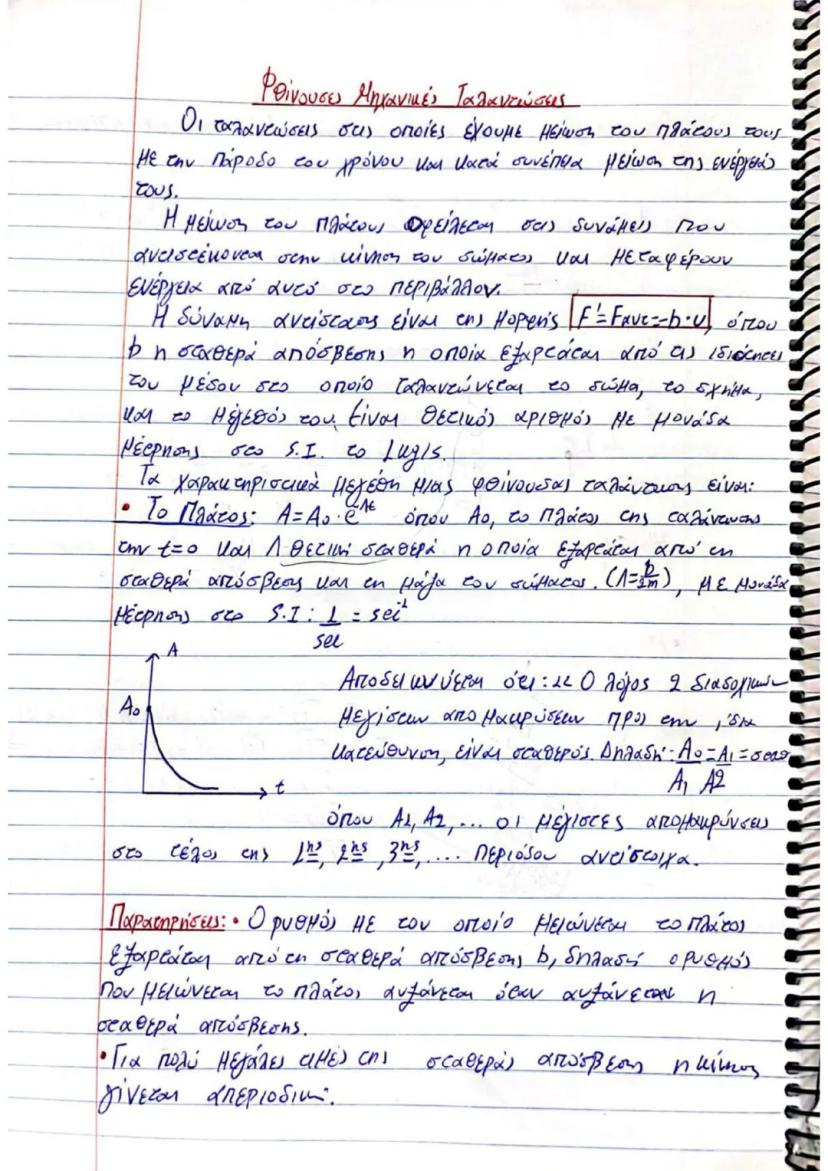 Φθίνουσες Μηχανικές Ταλαντώσεις
Οι ταλαντώσεις στις οποίες έχουμε μείωση του πλάτους τους
με την πάροδο του χρόνου και κατά συνέπεια μείωση της ενέργειάς
τους.
Η μείωση του πλάτους οφείλεται στις δυνάμεις που
αντιστέκονται στην κίνηση του σώματος και μεταφέρουν
ενέργεια από αυτό στο περιβάλλον.
Η δύναμη αντίστασης είναι της μορφής F'=Fαντ=-b·υ, όπου
b η σταθερά απόσβεσης η οποία εξαρτάται από τις ιδιότητες
του μέσου στο οποίο ταλαντώνεται το σώμα, το σχήμα,
και το μέγεθός του. Είναι θετικός αριθμός με μονάδα
μέτρησης στο S.I. το 1kg/s.
Τα χαρακτηριστικά μεγέθη μιας φθίνουσας ταλάντωσης είναι:
• Το Πλάτος: A=A₀·e^-Λt όπου A₀, το πλάτος της ταλάντωσης
την t=0 και Λ θετική σταθερά η οποία εξαρτάται από τη
σταθερά απόσβεσης και τη μάζα του σώματος. (Λ=b/2m), με μονάδα
μέτρησης στο S.I: 1/sec = sec⁻¹
A
A₀
t
Αποδεικνύεται ότι: << Ο λόγος 2 διαδοχικών
μεγίστων απομακρύνσεων προς την ίδια
κατεύθυνση, είναι σταθερός. Δηλαδή: A₀/A₁=A₁/A2=σταθ
όπου A1, A2, ... οι μέγιστες απομακρύνσεις
στο τέλος της 1ης, 2ης, 3ης, ... περιόδου αντίστοιχα.
Παρατηρήσεις: • Ο ρυθμός με τον οποίο μειώνεται το πλάτος
εξαρτάται από τη σταθερά απόσβεσης b, δηλαδή ο ρυθμός
που μειώνεται το πλάτος αυξάνεται όταν αυξάνεται η
σταθερά απόσβεσης.
• Για πολύ μεγάλες τιμές της σταθεράς απόσβεσης η κίνηση
γίνεται απεριοδική.